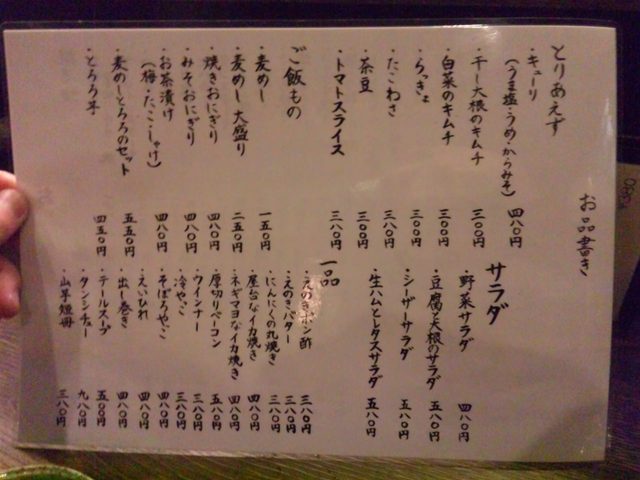 お品書き
とりあえず
・キューリ
(うま塩・うめ・からみそ) 四八〇円
・干し大根のキムチ 三〇〇円
・白菜のキムチ 三〇〇円
・らっきょ 三〇〇円
・たこわさ 三八〇円
・茶豆 三〇〇円
・トマトスライス 三八〇円
ご飯もの
・麦めし 一五〇円
・麦めし大盛り 二五〇円
・焼きおにぎり 四八〇円
・みそおにぎり 四八〇円
・お茶漬け
(梅・たこ・しゃけ) 四八〇円
・麦めしとろろのセット 五五〇円
・とろろ芋 四五〇円
サラダ
・野菜サラダ 四八〇円
・豆腐と大根のサラダ 五八〇円
・シーザーサラダ 五八〇円
・生ハムとレタスサラダ 五八〇円
一品
・えのきポン酢 三八〇円
・えのきバター 三八〇円
・にんにくの丸焼き 三八〇円
・屋台なイカ焼き 四八〇円
・ネギマヨなイカ焼き 四八〇円
・厚切りベーコン 五八〇円
・ウインナー 三八〇円
・冷やっこ 三八〇円
・そぼろやっこ 四八〇円
・えいひれ 四八〇円
・出し巻き 四八〇円
・テールスープ 五〇〇円
・タンシチュー 九八〇円
・山芋短冊 三八〇円